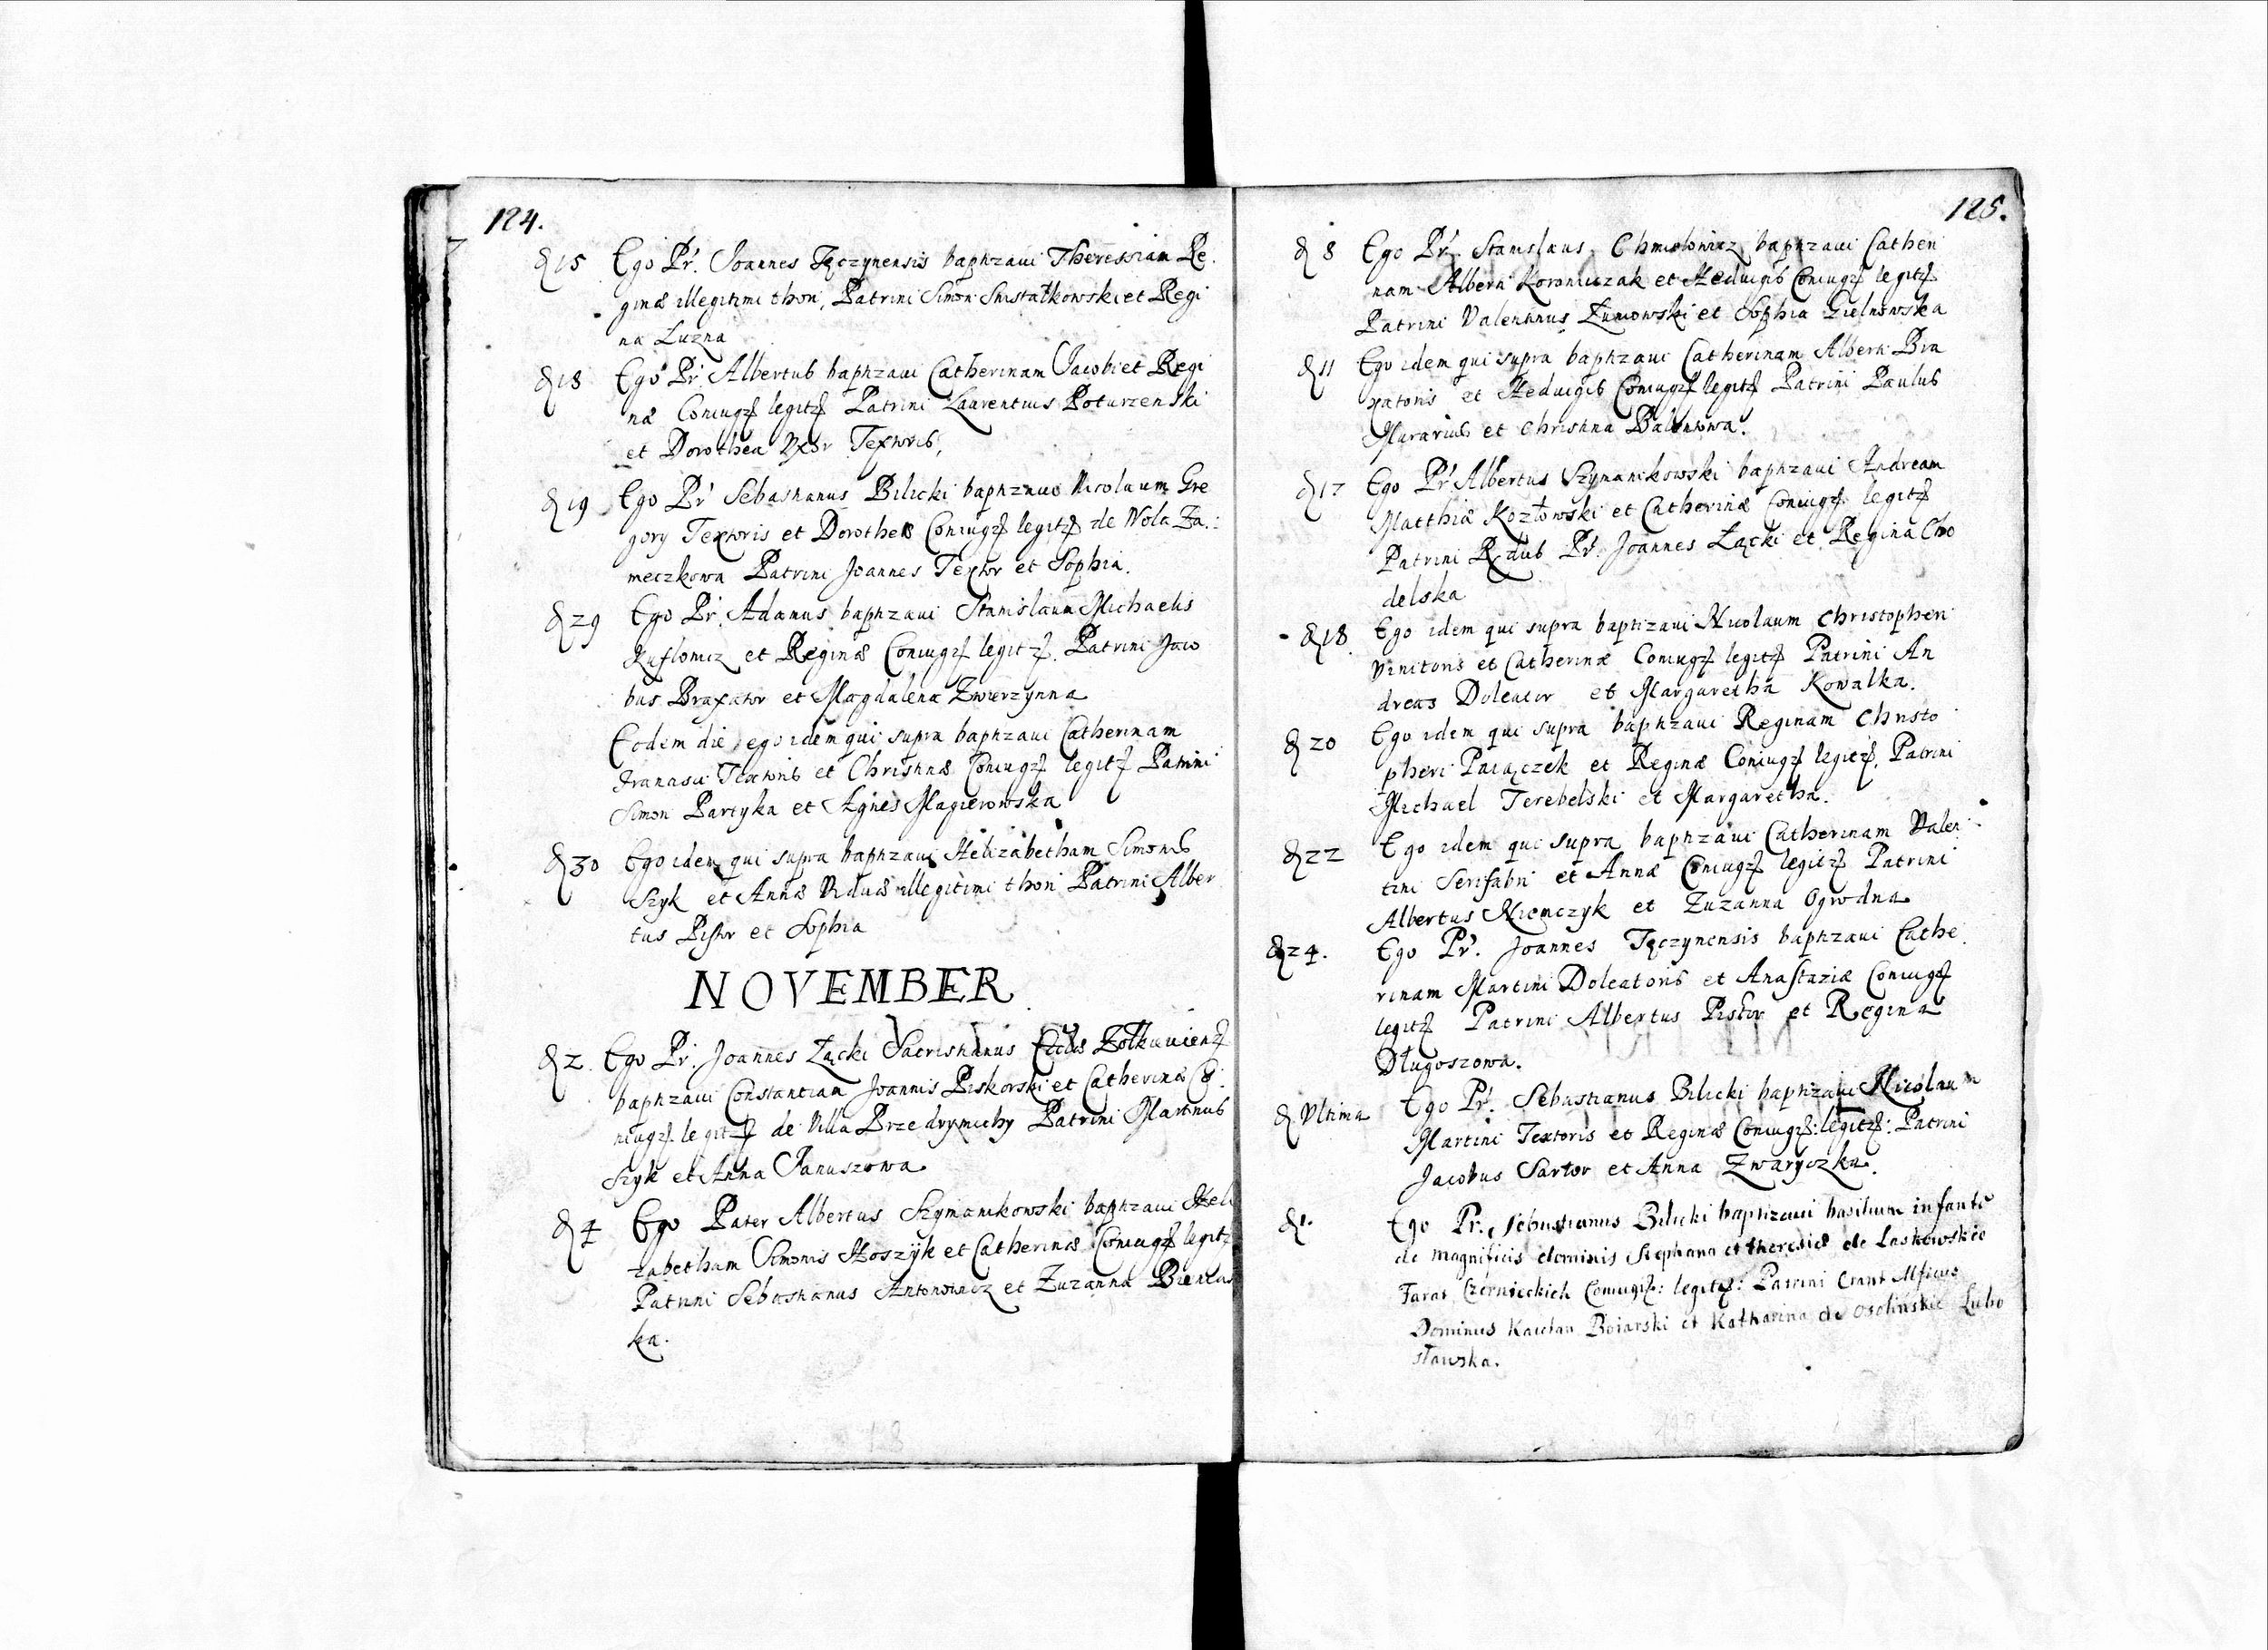 124.
D 15 Ego Pr. Joannes Tęczynensis baptizaui Theressiam Re
ginæ illegitimi thori, Patrini Simon Snistałkowski et Regi
na Luzna
D 18 Ego Pr Albertus baptizaui Catherinam Jacobi et Regi
næ Coniugȝ legitȝ Patrini Laurentius Poturzenski
et Dorothea Vxor Textoris,
D 19 Ego Pr Sebastianus Bilicki baptizaui Nicolaum Gre
gory Textoris et Dorotheæ Coniugȝ legitȝ de Wola Za
meczkowa Patrini Joannes Textor et Sophia.
D 29 Ego Pr. Adamus baptizaui Stanislaum Michaelis
et Reginæ Coniugȝ legitȝ. Patrini Jaco
bus Braxator et Magdalena Zwierzynna
Eodem die ego idem qui supra baptizaui Catherinam
Textoris et Christinæ Coniugȝ legitȝ Patrini
Simon Partyka et Agnes Magierowska
D 30 Ego idem qui supra baptizaui Helizabetham Simonis
Szyk et Annæ Viduæ illegitimi thori Patrini Alber
tus Pistor et Sophia
NOVEMBER
D 2. Ego Pr. Joannes Łącki Sacristianus Eccłs Zołkiuienȝ
baptizaui Constantiam Joannis Piskorski et Catherinæ Co
niugȝ legitȝ de Villa Przedrymichy Patrini Martinus
Szyk et Anna Januszowa
D 4 Ego Pater Albertus Szymanikowski baptizaui Heli
zabetham Simonis Hoszyk et Catherinæ Coniugȝ legitȝ
Patrini Sebastianus Antonowicz et Zuzanna
ka.
125.
D 8 Ego Pr. Stanislaus Chmielowicz baptizaui Catheri
nam Alberti Koroniczak et Heduigis Coniugȝ legitȝ
Patrini Valentinus Zumowski et Sophia Gielnowska
D 11 Ego idem qui supra baptizaui Catherinam Alberti Bra
xatoris et Heduigis Coniugȝ legitȝ Patrini Paulus
Murarius et Christina
D 17 Ego Pr Albertus Szymanikowski baptizaui Andream
Matthiæ Kozłowski et Catherinæ Coniugȝ legitȝ
Patrini Rdus Pr. Joannes Łącki et Regina Cho
delska
D 18. Ego idem qui supra baptizaui Nicolaum Christopheri
Vinitoris et Catherinæ Coniugȝ legitȝ Patrini An
dreas Doleator et Margaretha Kowalka.
D 20 Ego idem qui supra baptizaui Reginam Christo
pheri Paiączek et Reginæ Coniugȝ legitȝ. Patrini
Michael Terebelski et Margaretha.
D 22 Ego idem qui supra baptizaui Catherinam Valen
tini Serifabri et Annæ Coniugȝ legitȝ Patrini
Albertus Niemczyk et Zuzanna Ogrodna
D 24. Ego Pr. Joannes Tęczynensis baptizaui Cathe
rinam Martini Doleatoris et Anastaziæ Coniugȝ
legitȝ Patrini Albertus Pistor et Regina
Długoszowa.
D Vltima Ego Pr. Sebastianus Bilicki baptizaui Nicolaum
Martini Textoris et Reginæ Coniugȝ: legitȝ: Patrini
Jacobus Sartor et Anna Zwaryczka.
D Ego Pr. Sebastianus Bilicki baptizaui basilium infantē
de magnificis dominis Stephano et theresiæ de Laskowskie
Farat Czernieckich Coniugȝ: legitȝ: Patrini Erant
Dominus Kaietan Boiarski et Katharina de Osolinskie Lubo
sławska.